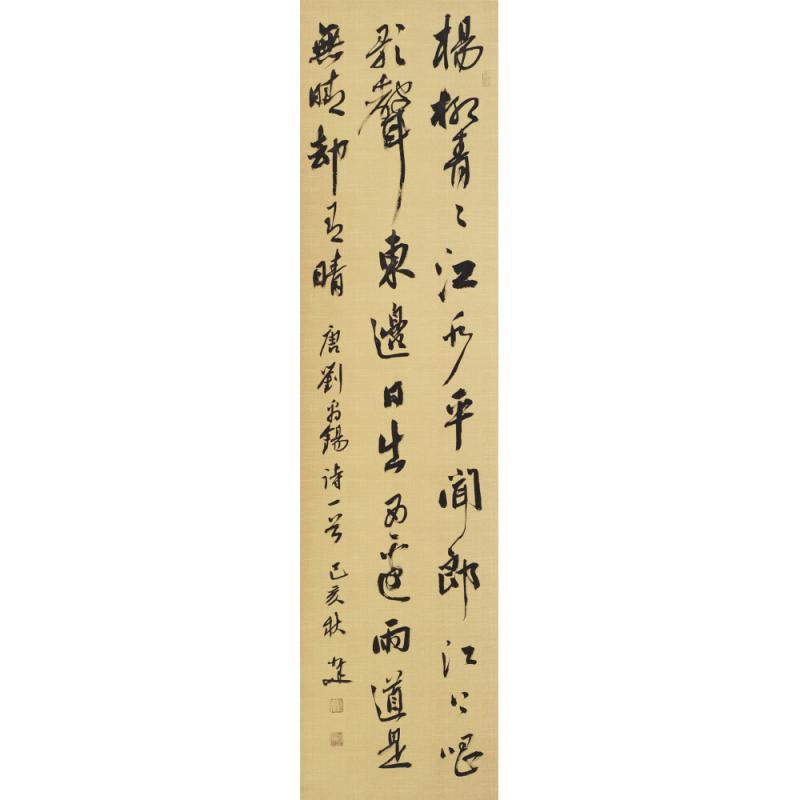 楊柳青〻江水平聞郎江上唱
歌聲東邊日出西邊雨道是
無晴却有晴 唐劉禹錫詩一首 己亥秋